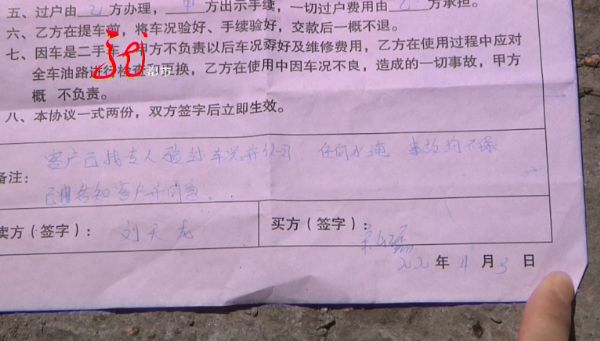 五、过户由乙方办理，甲方出示手续，一切过户费用由乙方承担。
六、乙方在提车前，将车况验好、手续验好，交款后一概不退。
七、因车是二手车，甲方不负责以后车况好及维修费用，乙方在使用过程中应对
全车油路进行检查和更换，乙方在使用中因车况不良，造成的一切事故，甲方
概 不负责。
八、本协议一式两份，双方签字后立即生效。
客户已找专人验车 车况并认可 任何水淹 事故均不保
备注：
已明告知客户并同意
卖方（签字）： 刘天龙 买方（签字）：
年 4 月 3 日